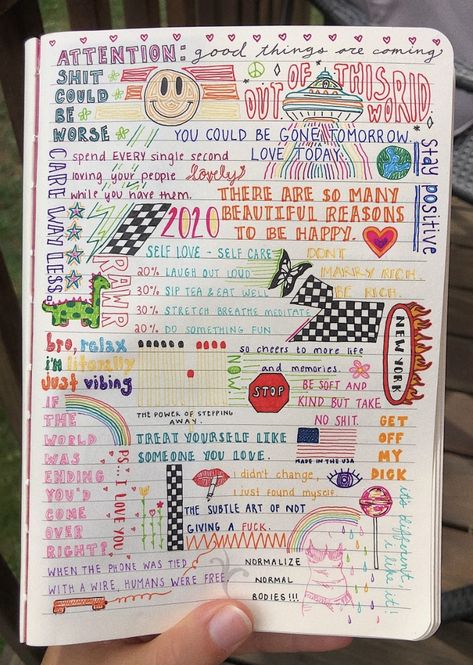 ATTENTION: good things are coming
SHIT
COULD
BE
WORSE
OUT OF THIS WORLD.
YOU COULD BE GONE TOMORROW.
LOVE TODAY.
stay positive
CARE WAY LESS.
spend EVERY single second
loving your people lovely
while you have them.
THERE ARE SO MANY
BEAUTIFUL REASONS
TO BE HAPPY.
2020
RAWR
SELF LOVE - SELF CARE
20% LAUGH OUT LOUD
30% SIP TEA & EAT WELL
30% STRETCH BREATHE MEDITATE
20% DO SOMETHING FUN
DONT
MARRY RICH.
BE RICH.
NEW YORK
bro, relax
i'm literally
just vibing
NOW
so cheers to more life
and memories.
STOP
BE SOFT AND
KIND BUT TAKE
NO SHIT.
THE POWER OF STEPPING
AWAY.
GET
OFF
MY
DICK
IF
THE
WORLD
WAS
ENDING
YOU'D
COME
OVER
RIGHT?
TREAT YOURSELF LIKE
SOMEONE YOU LOVE.
MADE IN THE USA
PS... I LOVE YOU
i didn't change,
i just found myself
THE SUBTLE ART OF NOT
GIVING A FUCK.
it's different,
i like it!
WHEN THE PHONE WAS TIED
WITH A WIRE, HUMANS WERE FREE.
NORMALIZE
NORMAL
BODIES!!!